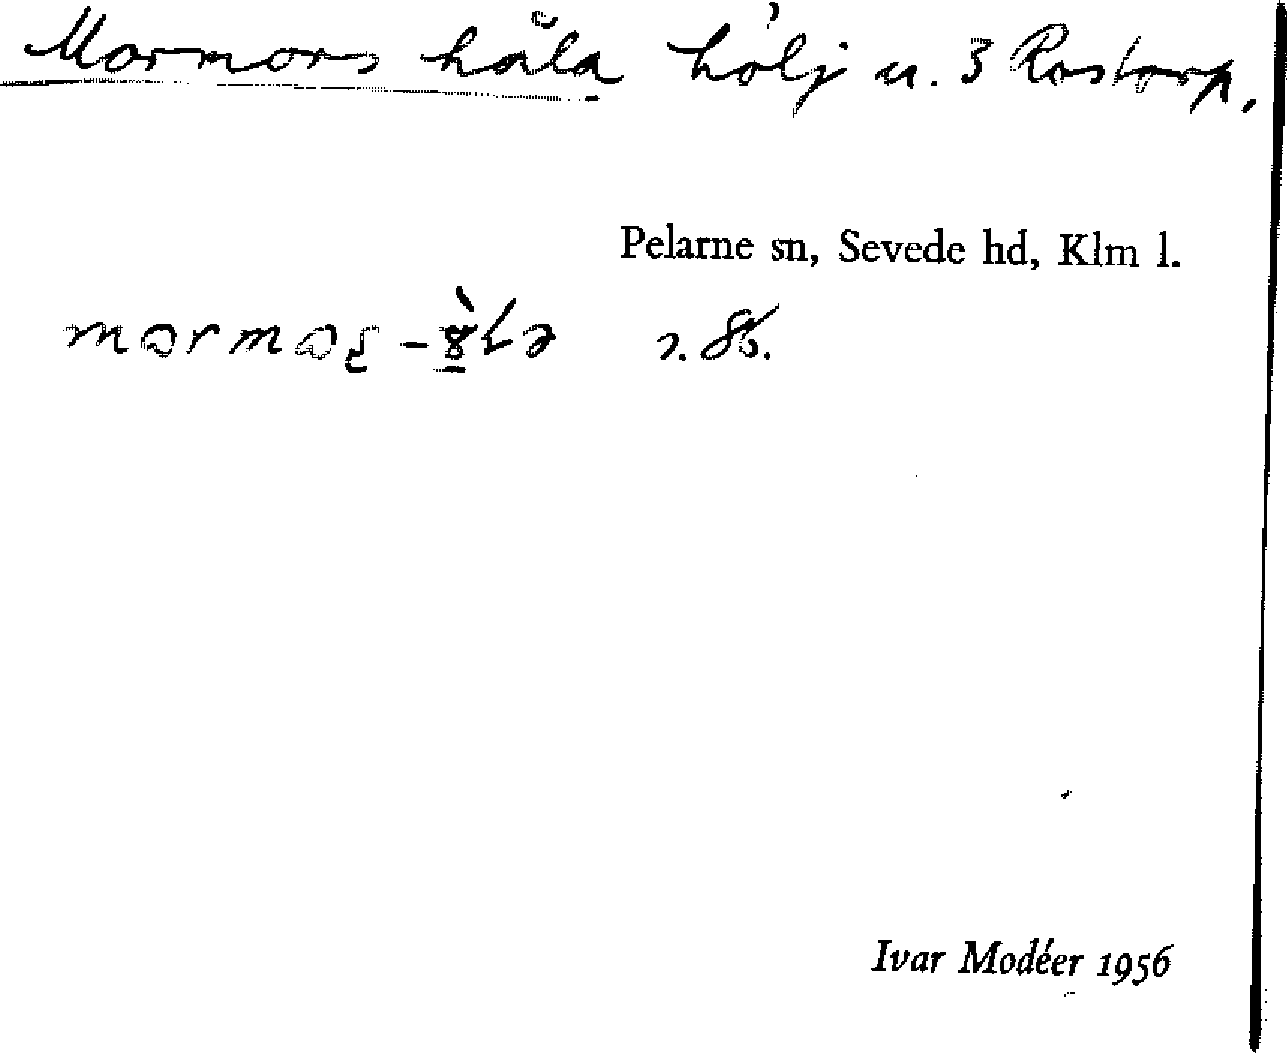 Mormors håla hölj u. 3 Rostorp.
Pelarne sn, Sevede hd, Klm l.
Ivar Modéer 1956